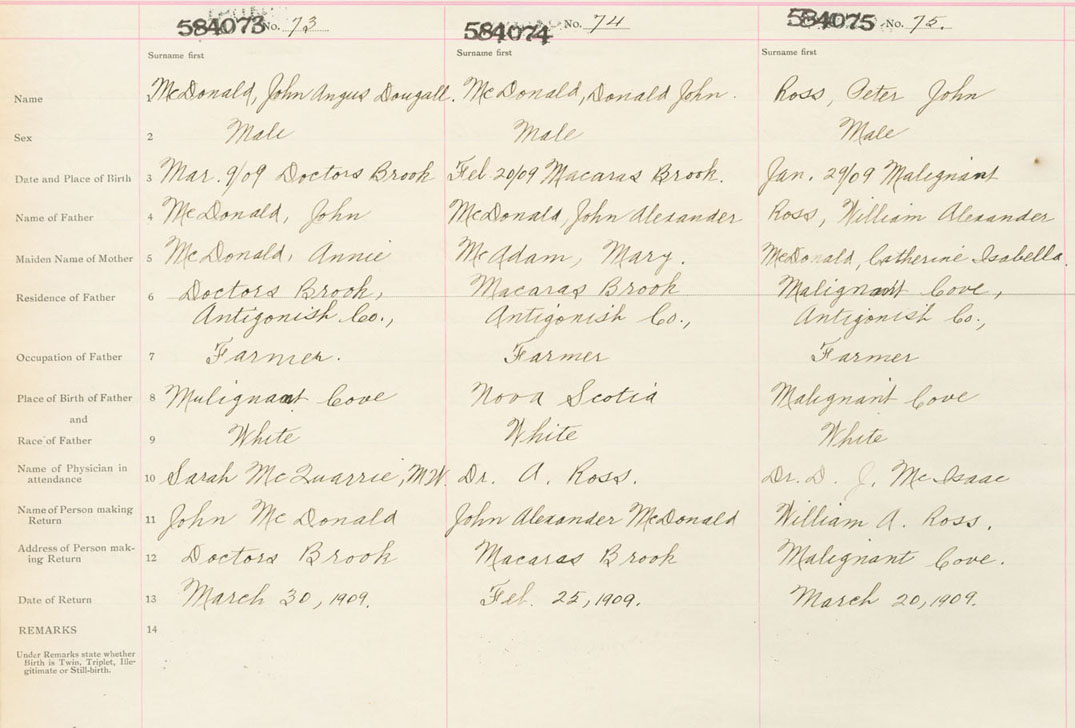 584073 No. 73 584074 No. 74 584075 No. 75.
Surname first Surname first Surname first
Name McDonald, John Angus Dougall. McDonald, Donald John. Ross, Peter John
Sex 2 Male Male Male
Date and Place of Birth 3 Mar. 9/09 Doctors Brook Feb 20/09 Macaras Brook. Jan. 29/09 Malignant
Name of Father 4 McDonald, John McDonald, John Alexander Ross, William Alexander
Maiden Name of Mother 5 McDonald, Annie McAdam, Mary. McDonald, Catherine Isabella.
Residence of Father 6 Doctors Brook, Macaras Brook Malignant Cove,
Antigonish Co., Antigonish Co., Antigonish Co.,
Occupation of Father 7 Farmer. Farmer Farmer
Place of Birth of Father 8 Malignant Cove Nova Scotia Malignant Cove
and
Race of Father 9 White White White
Name of Physician in
attendance 10 Sarah McQuarrie, M.W. Dr. A. Ross. Dr. D. J. McIsaac
Name of Person making
Return 11 John McDonald John Alexander McDonald William A. Ross.
Address of Person mak-
ing Return 12 Doctors Brook Macaras Brook Malignant Cove.
Date of Return 13 March 30, 1909. Feb. 25, 1909. March 20, 1909.
REMARKS 14
Under Remarks state whether
Birth is Twin, Triplet, Ille-
gitimate or Still-birth.